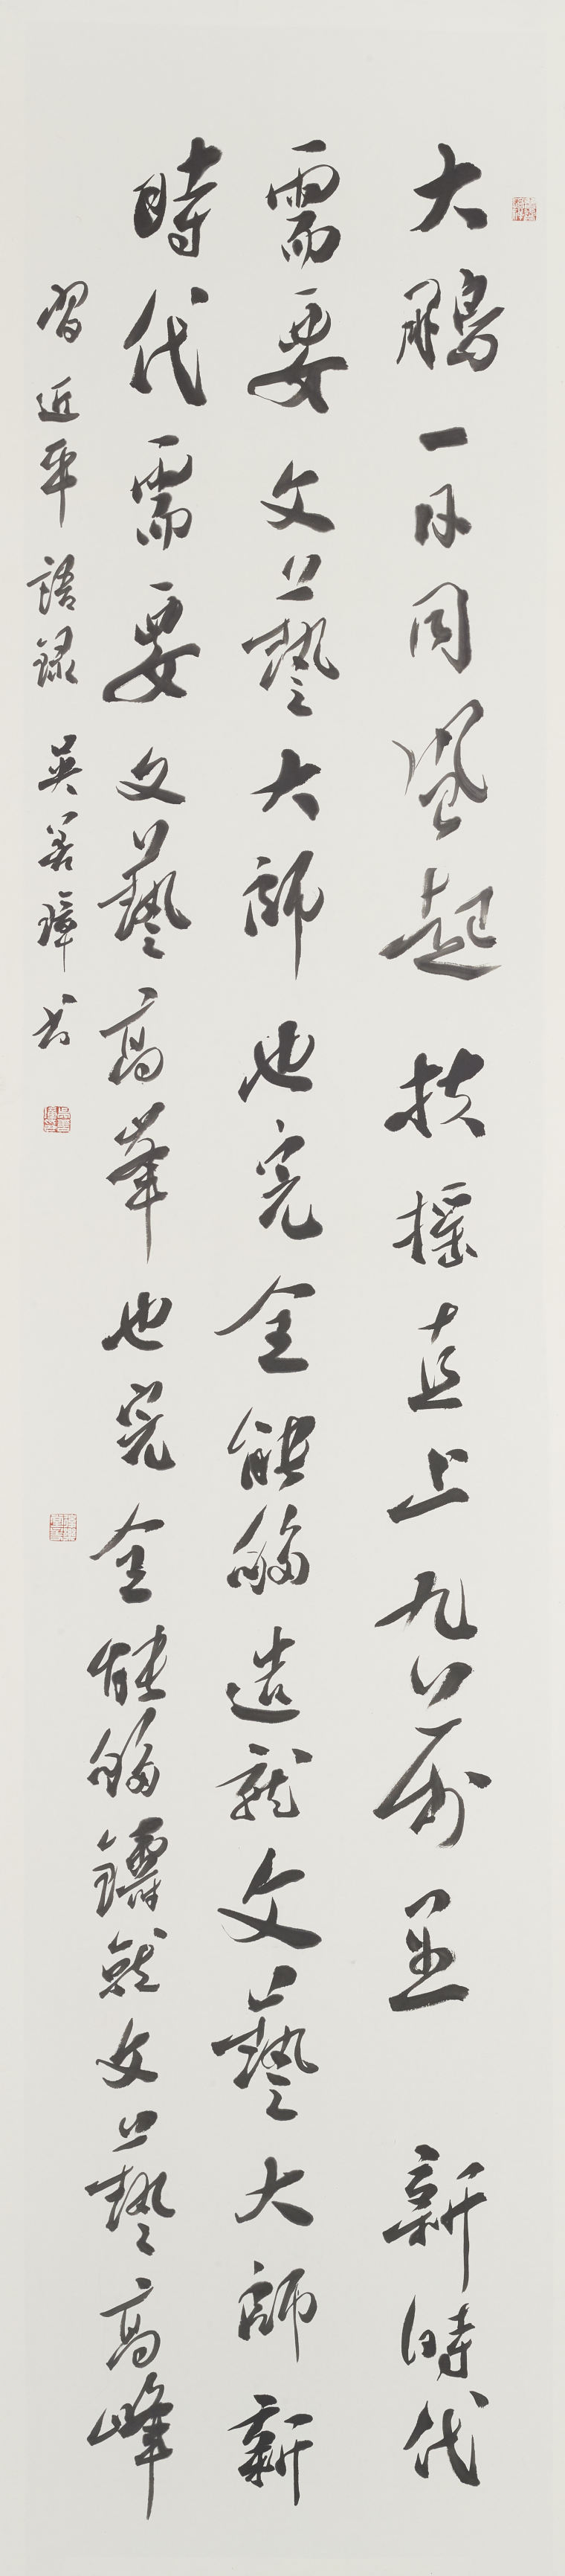 大鵬一日同風起扶摇直上九万里新時代
需要文藝大師也完全能够造就文藝大師新
時代需要文藝高峯也完全能够鑄就文藝高峰
習近平語録吴善璋书